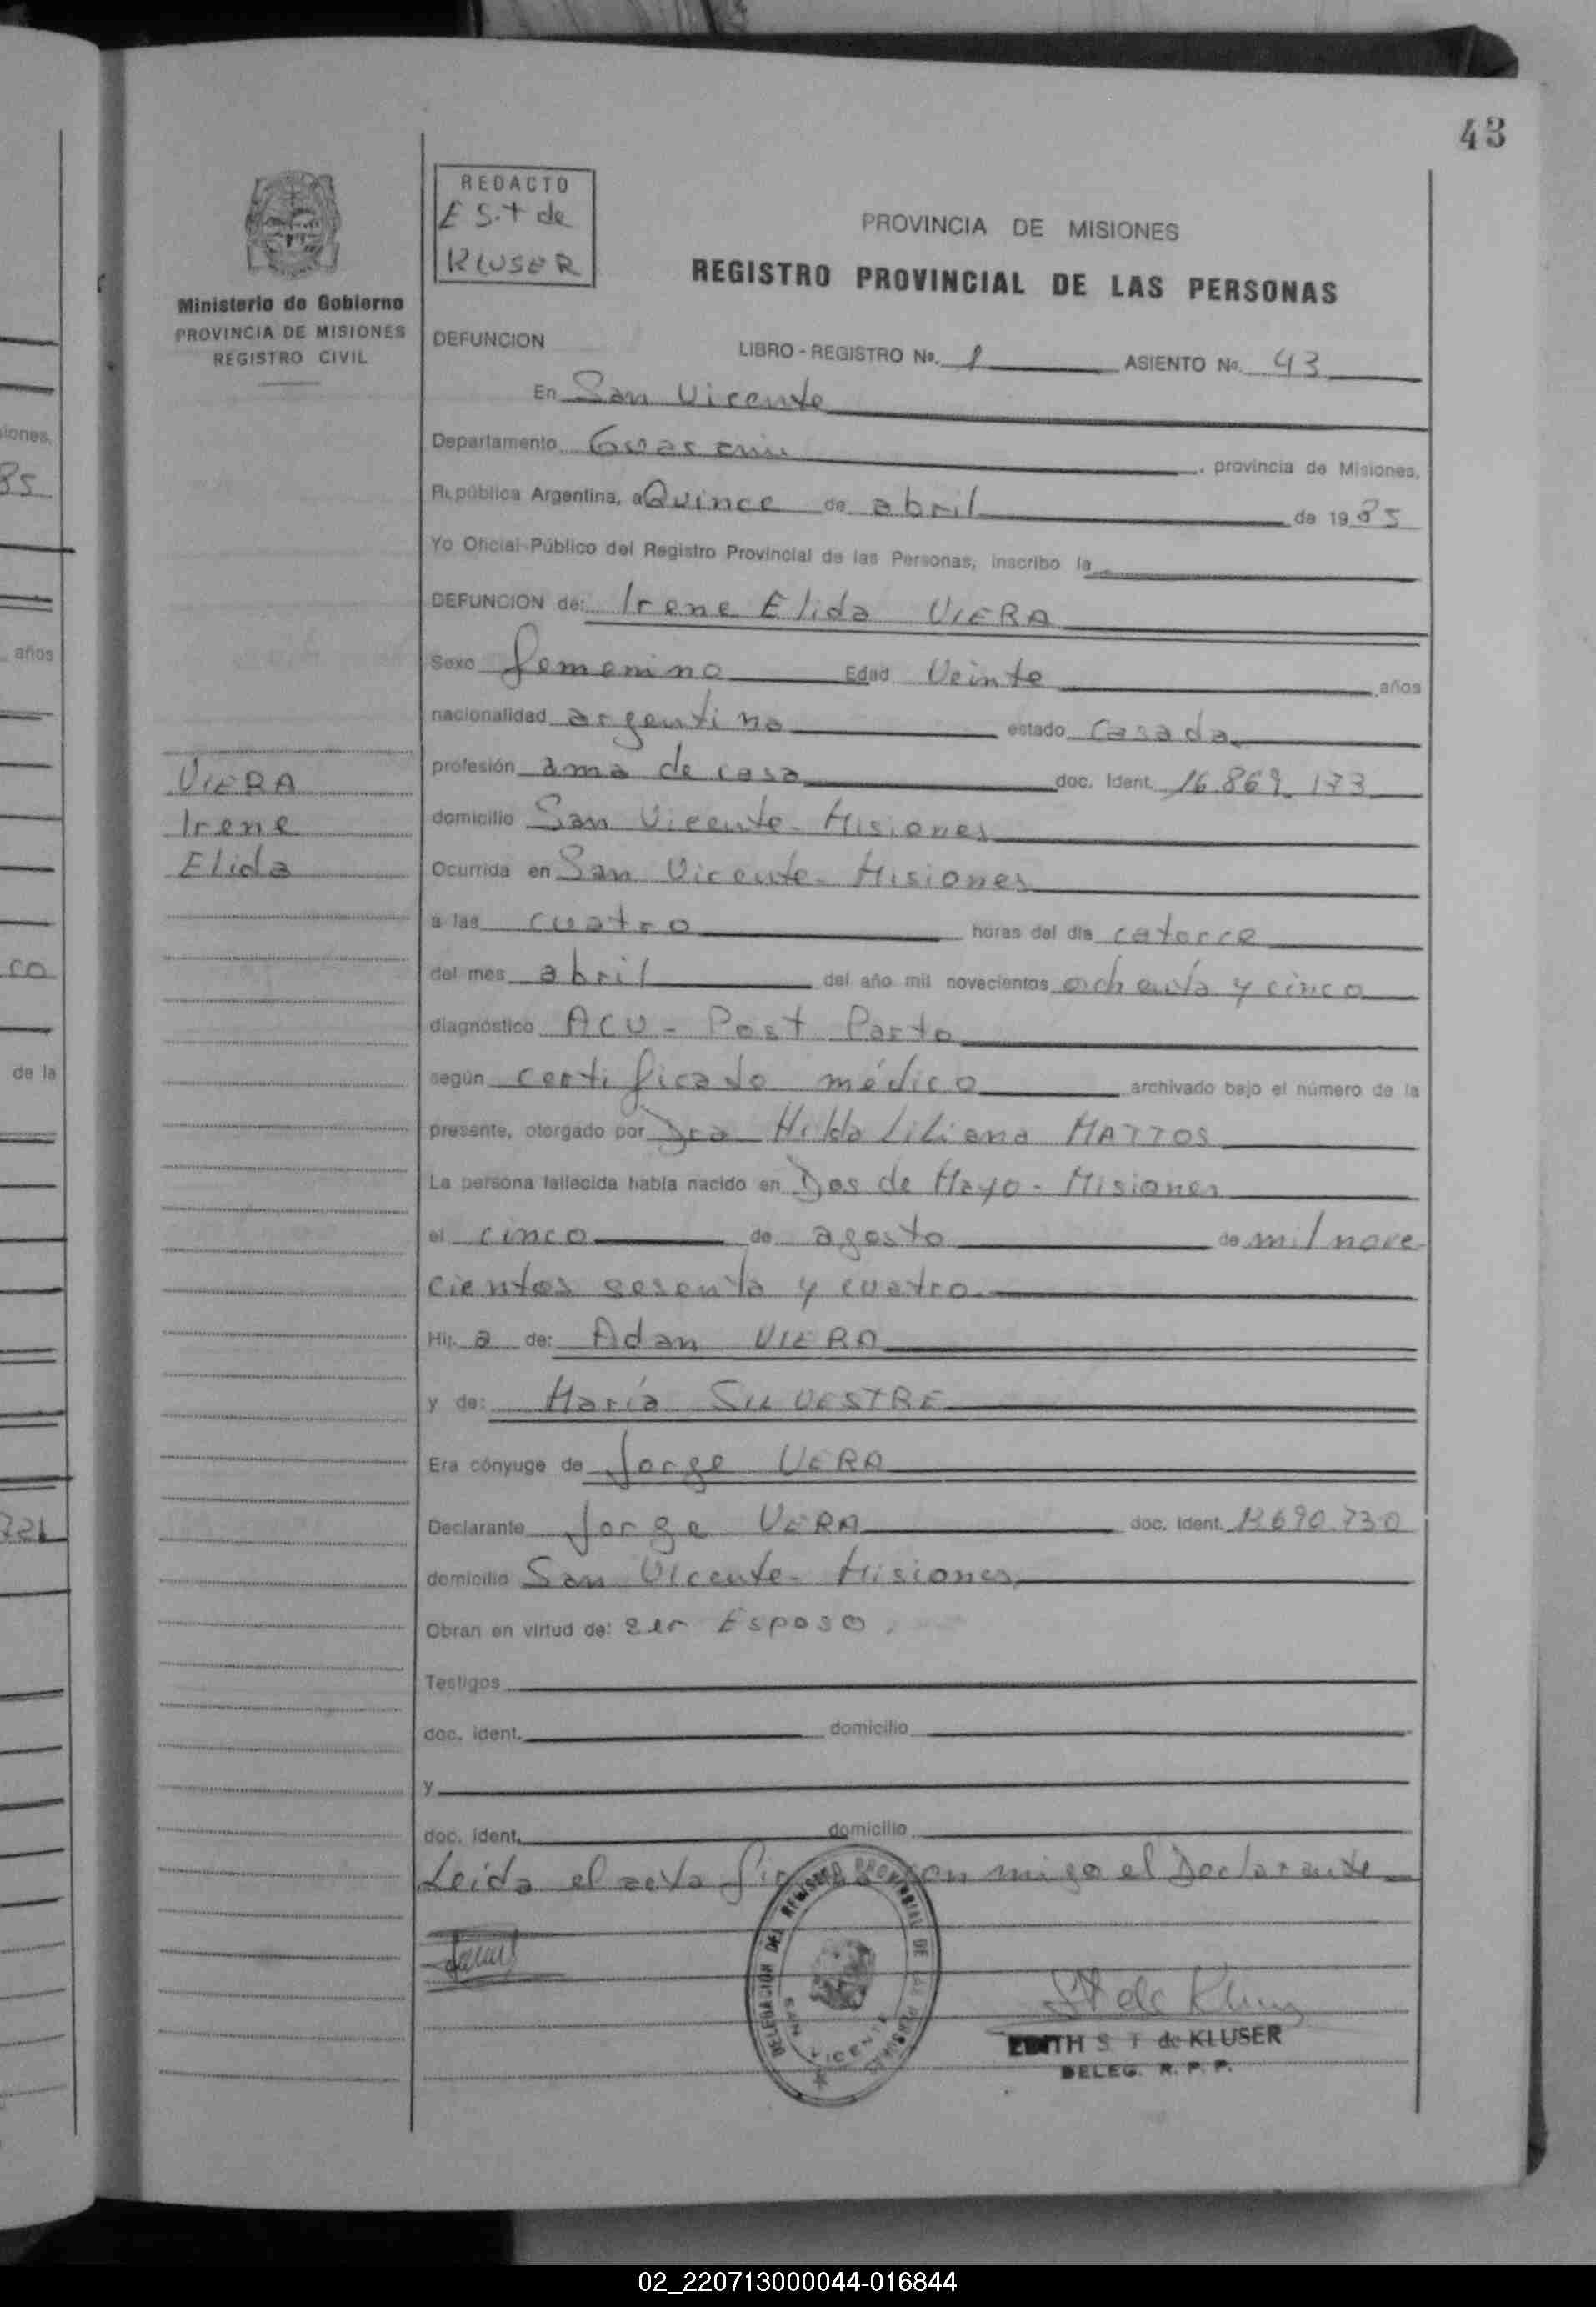 43
REDACTO
E S.T de
KLUSER
PROVINCIA DE MISIONES
REGISTRO PROVINCIAL DE LAS PERSONAS
Ministerio de Gobierno
PROVINCIA DE MISIONES
REGISTRO CIVIL
DEFUNCION LIBRO - REGISTRO Nº. 1 ASIENTO Nº. 43
En San Vicente
Departamento Guaraní, provincia de Misiones,
República Argentina, a Quince de abril de 1985
Yo Oficial Público del Registro Provincial de las Personas, inscribo la
DEFUNCION de: Irene Elida VIERA
Sexo femenino Edad Veinte años
nacionalidad argentina estado casada
profesión ama de casa doc. Ident. 16.869.173
domicilio San Vicente - Misiones
Ocurrida en San Vicente - Misiones
a las cuatro horas del día catorce
del mes abril del año mil novecientos ochenta y cinco
diagnóstico ACV - Post Parto
según certificado médico archivado bajo el número de la
presente, otorgado por Dra Hilda Liliana MATTOS
La persona fallecida había nacido en Dos de Mayo - Misiones
el cinco de agosto de mil nove
cientos sesenta y cuatro.
Hij a de: Adan VIERA
y de: María SILVESTRE
Era cónyuge de Jorge VERA
Declarante Jorge VERA doc. Ident. 13.690.730
domicilio San Vicente - Misiones
Obran en virtud de: ser Esposo.
Testigos
doc. ident. domicilio
y
doc. ident. domicilio
Leída el acta firma conmigo el Declarante
VIERA
Irene
Elida
DELEGACION DEL REGISTRO PROVINCIAL DE LAS PERSONAS
SAN VICENTE
EDITH S. T de KLUSER
DELEG. R. P. P.
iones,
85
años
co
de la
721
02_220713000044-016844